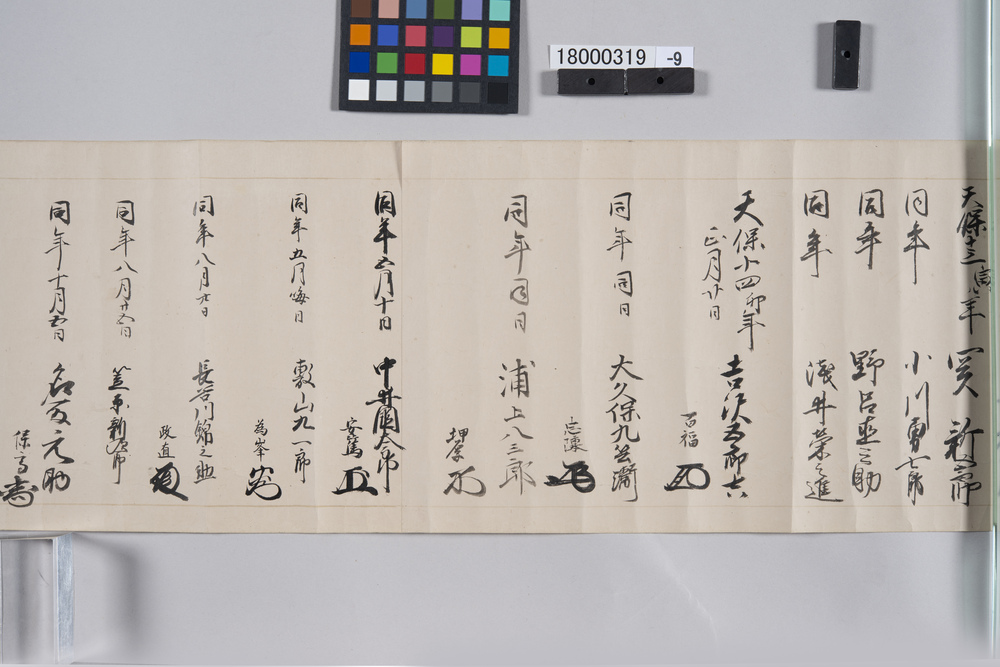 18000319 -9
天保十三寅八年
関 新
同年
小川勇七郎
同年
野呂直之助
同年
浅井栄之進
天保十四卯年
正月廿日
吉沢五郎吉
百福
同年同日
大久保九兵衛
忠陳
同年同日
浦上八三郎
同年五月十日
中井国今郎
安篤
同年五月晦日
敷山九一郎
為峯
同年八月廿日
長谷川錦之助
政直
同年八月廿五日
笠原新次郎
同年十月五日
名取元助
保高